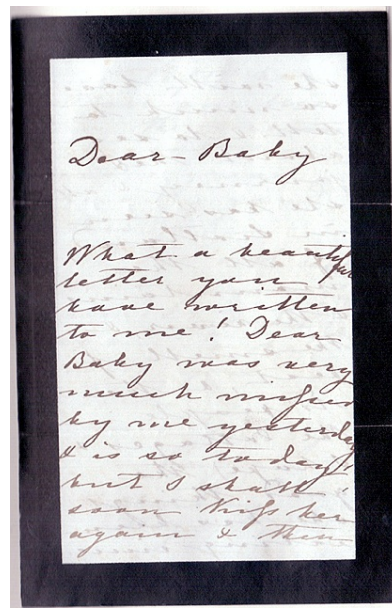 Dear Baby
What a beautiful
letter you
have written
to me! Dear
Baby was very
much missed
by me yesterday
& is so today!
but I shall
soon kiss her
again & then